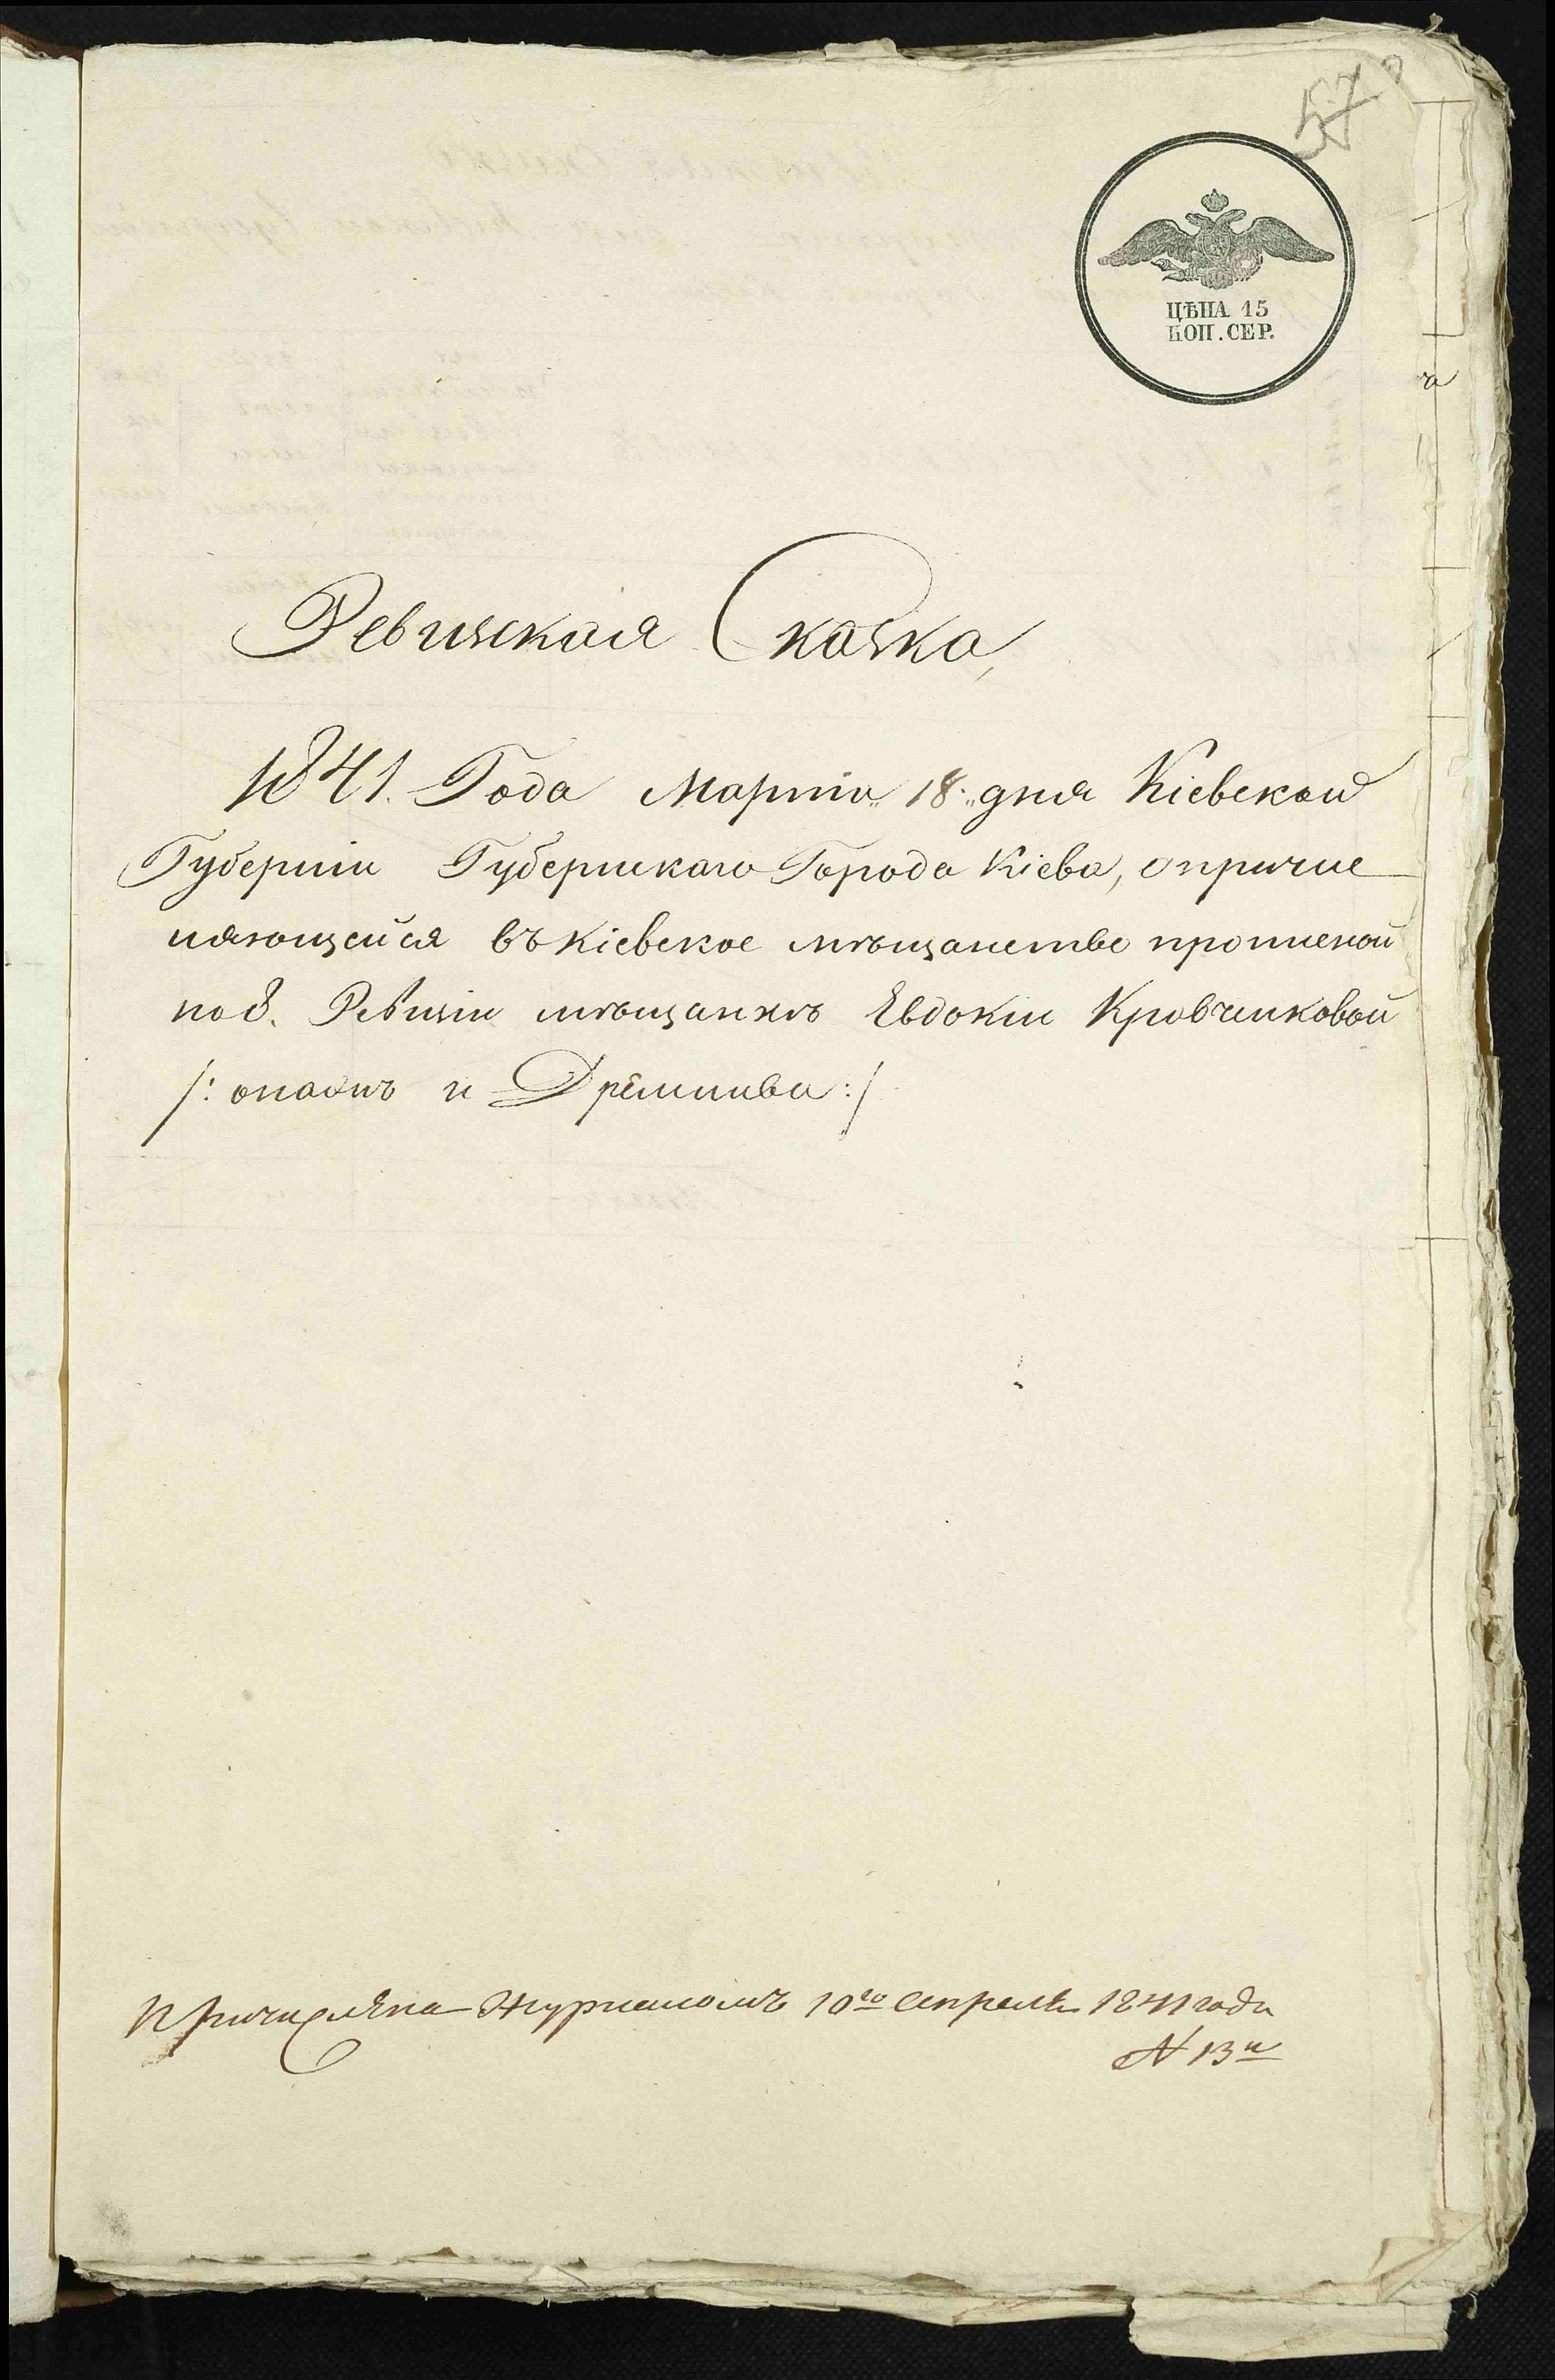 57
ЦѢНА 15
КОП. СЕР.
Ревизская Сказка,
1841. Года Марта „18„ дня Кіевской
Губерніи Губернскаго Города Кіева, о причис
ляющейся въ Кіевское мѣщанство
по 8. Ревизіи мѣщанкѣ Евдокіи Кравченковой
/: онаонъ и :/
Причислена Журналомъ 10го Апреля 1841 года
№ 13й